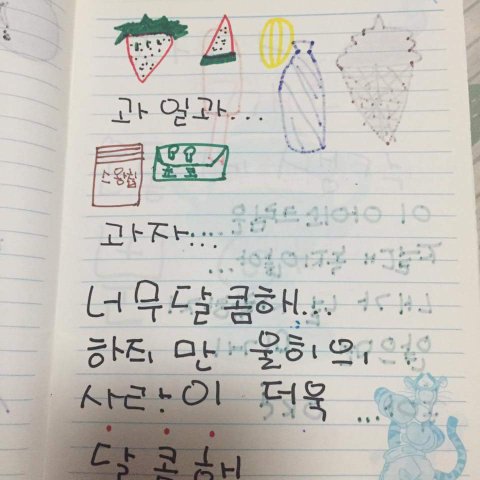 과일과...
스윙칩 초코
과자...
너무달콤해...
하즤만 울히의
사랑이 더욱 ...
달콤해